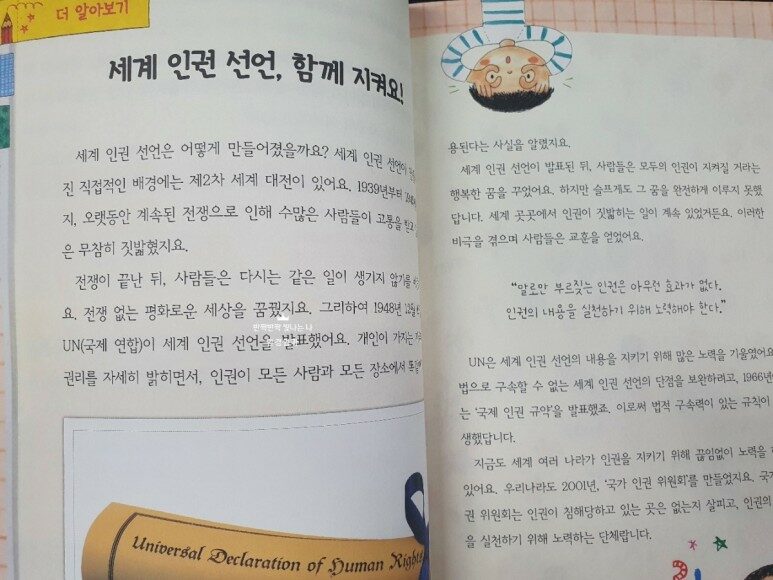 더 알아보기
세계 인권 선언, 함께 지켜요!
세계 인권 선언은 어떻게 만들어졌을까요? 세계 인권 선언이
진 직접적인 배경에는 제2차 세계 대전이 있어요. 1939년부터
지, 오랫동안 계속된 전쟁으로 인해 수많은 사람들이 고통을 받고
은 무참히 짓밟혔지요.
전쟁이 끝난 뒤, 사람들은 다시는 같은 일이 생기지 않기를
요. 전쟁 없는 평화로운 세상을 꿈꿨지요. 그리하여 1948년 12월
UN(국제 연합)이 세계 인권 선언을 발표했어요. 개인이 가지는
권리를 자세히 밝히면서, 인권이 모든 사람과 모든 장소에서
반짝반짝 빛나는 나
Universal Declaration of Human Rights
용된다는 사실을 알렸지요.
세계 인권 선언이 발표된 뒤, 사람들은 모두의 인권이 지켜질 거라는
행복한 꿈을 꾸었어요. 하지만 슬프게도 그 꿈을 완전하게 이루지 못했
답니다. 세계 곳곳에서 인권이 짓밟히는 일이 계속 있었거든요. 이러한
비극을 겪으며 사람들은 교훈을 얻었어요.
“말로만 부르짖는 인권은 아무런 효과가 없다.
인권의 내용을 실천하기 위해 노력해야 한다.”
UN은 세계 인권 선언의 내용을 지키기 위해 많은 노력을 기울였어요
법으로 구속할 수 없는 세계 인권 선언의 단점을 보완하려고, 1966년
는 ‘국제 인권 규약’을 발표했죠. 이로써 법적 구속력이 있는 규칙이
생했답니다.
지금도 세계 여러 나라가 인권을 지키기 위해 끊임없이 노력을
있어요. 우리나라도 2001년, ‘국가 인권 위원회’를 만들었지요. 국가
권 위원회는 인권이 침해당하고 있는 곳은 없는지 살피고, 인권의
을 실천하기 위해 노력하는 단체랍니다.